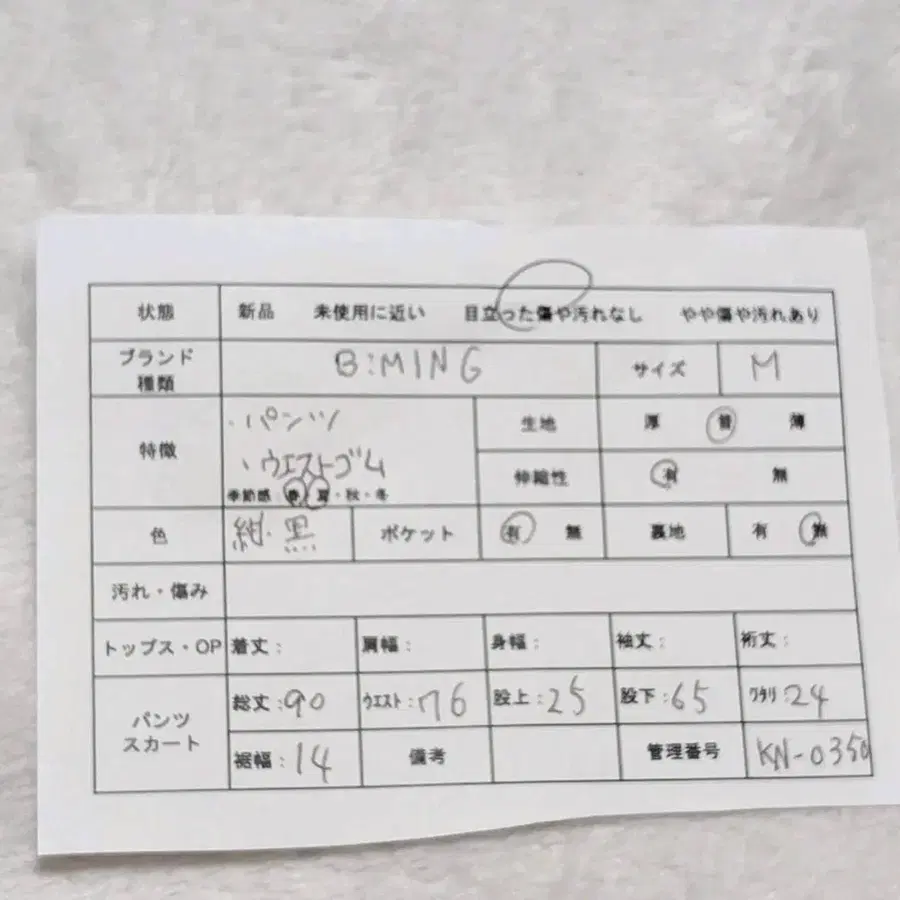 状態 新品 未使用に近い 目立った傷や汚れなし やや傷や汚れあり
ブランド 種類 B:MING サイズ M
特徴 ・パンツ 生地 厚 普 薄
、ウエストゴム 伸縮性 有 無
季節感：春・夏・秋・冬
色 紺・黒 ポケット 有 無 裏地 有 無
汚れ・傷み
トップス・OP 着丈： 肩幅： 身幅： 袖丈： 裄丈：
パンツ スカート 総丈：90 ウエスト：76 股上：25 股下：65 ワタリ：24
裾幅：14 備考 管理番号 KN-0350